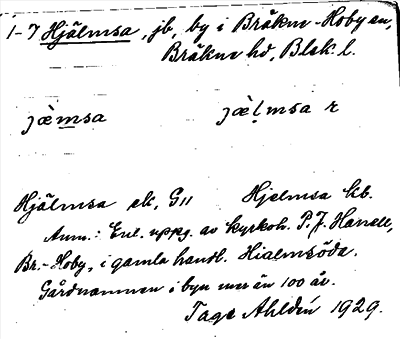 1-7 Hjälmsa, jb, by i Bräkne-Hoby sn,
Bräkne hd, Blek. l.
jæ̀msa jæ̀l̥msa r
Hjälmsa ek, G11 Hjelmsa kb.
Anm.: Enl. uppg. av kyrkoh. P.J. Hanell,
Br.-Hoby, i gamla handl. Hialmsöda.
Gårdnamnen i byn mer än 100 år.
Tage Ahldén 1929.